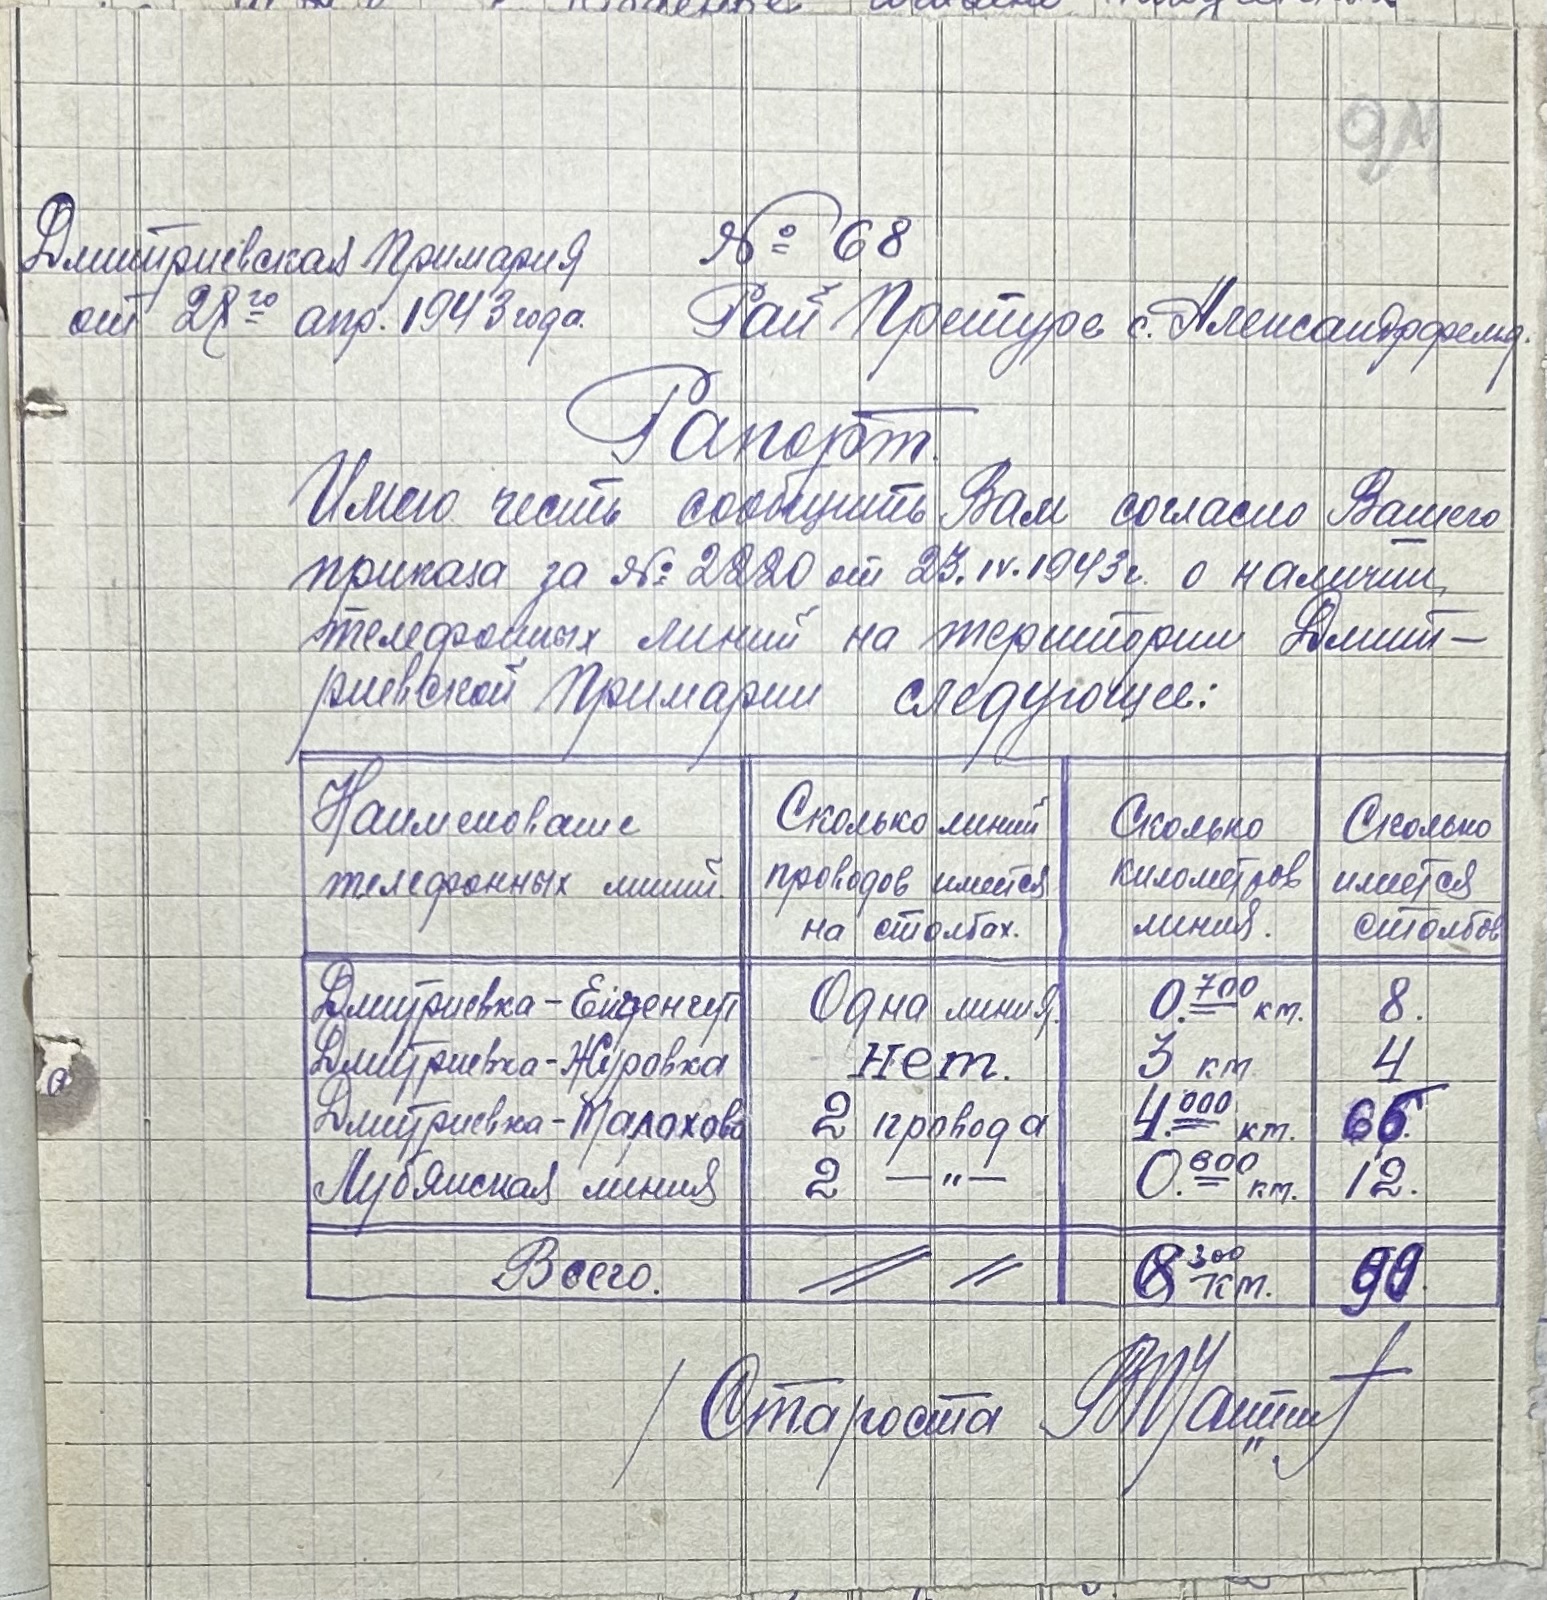 Дмитриевская Примария № 68
от 28го апр. 1943 года. Рай Претуре с. Александрфельд.
Рапорт.
Имею честь сообщить Вам согласно Вашего
приказа за № 2220 от 23.IV.1943 г. о наличии
телефонных линий на територии Дмит-
риевской Примарии следующее:
Наименование телефонных линий. Сколько линий проводов имеется на столбах. Сколько километров линия. Сколько имеется столбов
Дмитриевка-Ейгенгут Одна линия. 0.700 км. 8.
Дмитриевка-Журовка нет. 3 км 4
Дмитриевка-Малахово 2 провода 4.000 км. 66.
Лубянская линия 2 —"— 0.600 км. 12.
Всего. // // 8 300 км. 90.
Староста